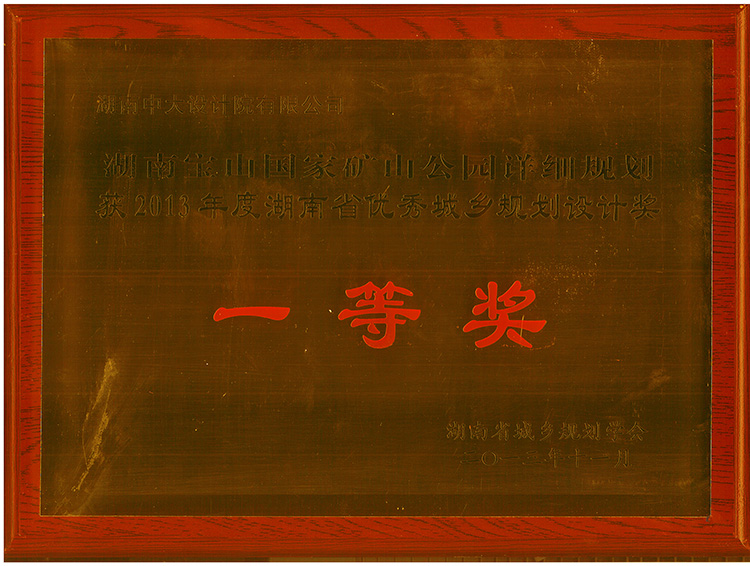 湖南中大设计院有限公司
湖南宝山国家矿山公园详细规划
获2013年度湖南省优秀城乡规划设计奖
一等奖
湖南省城乡规划学会
二〇一三年十一月